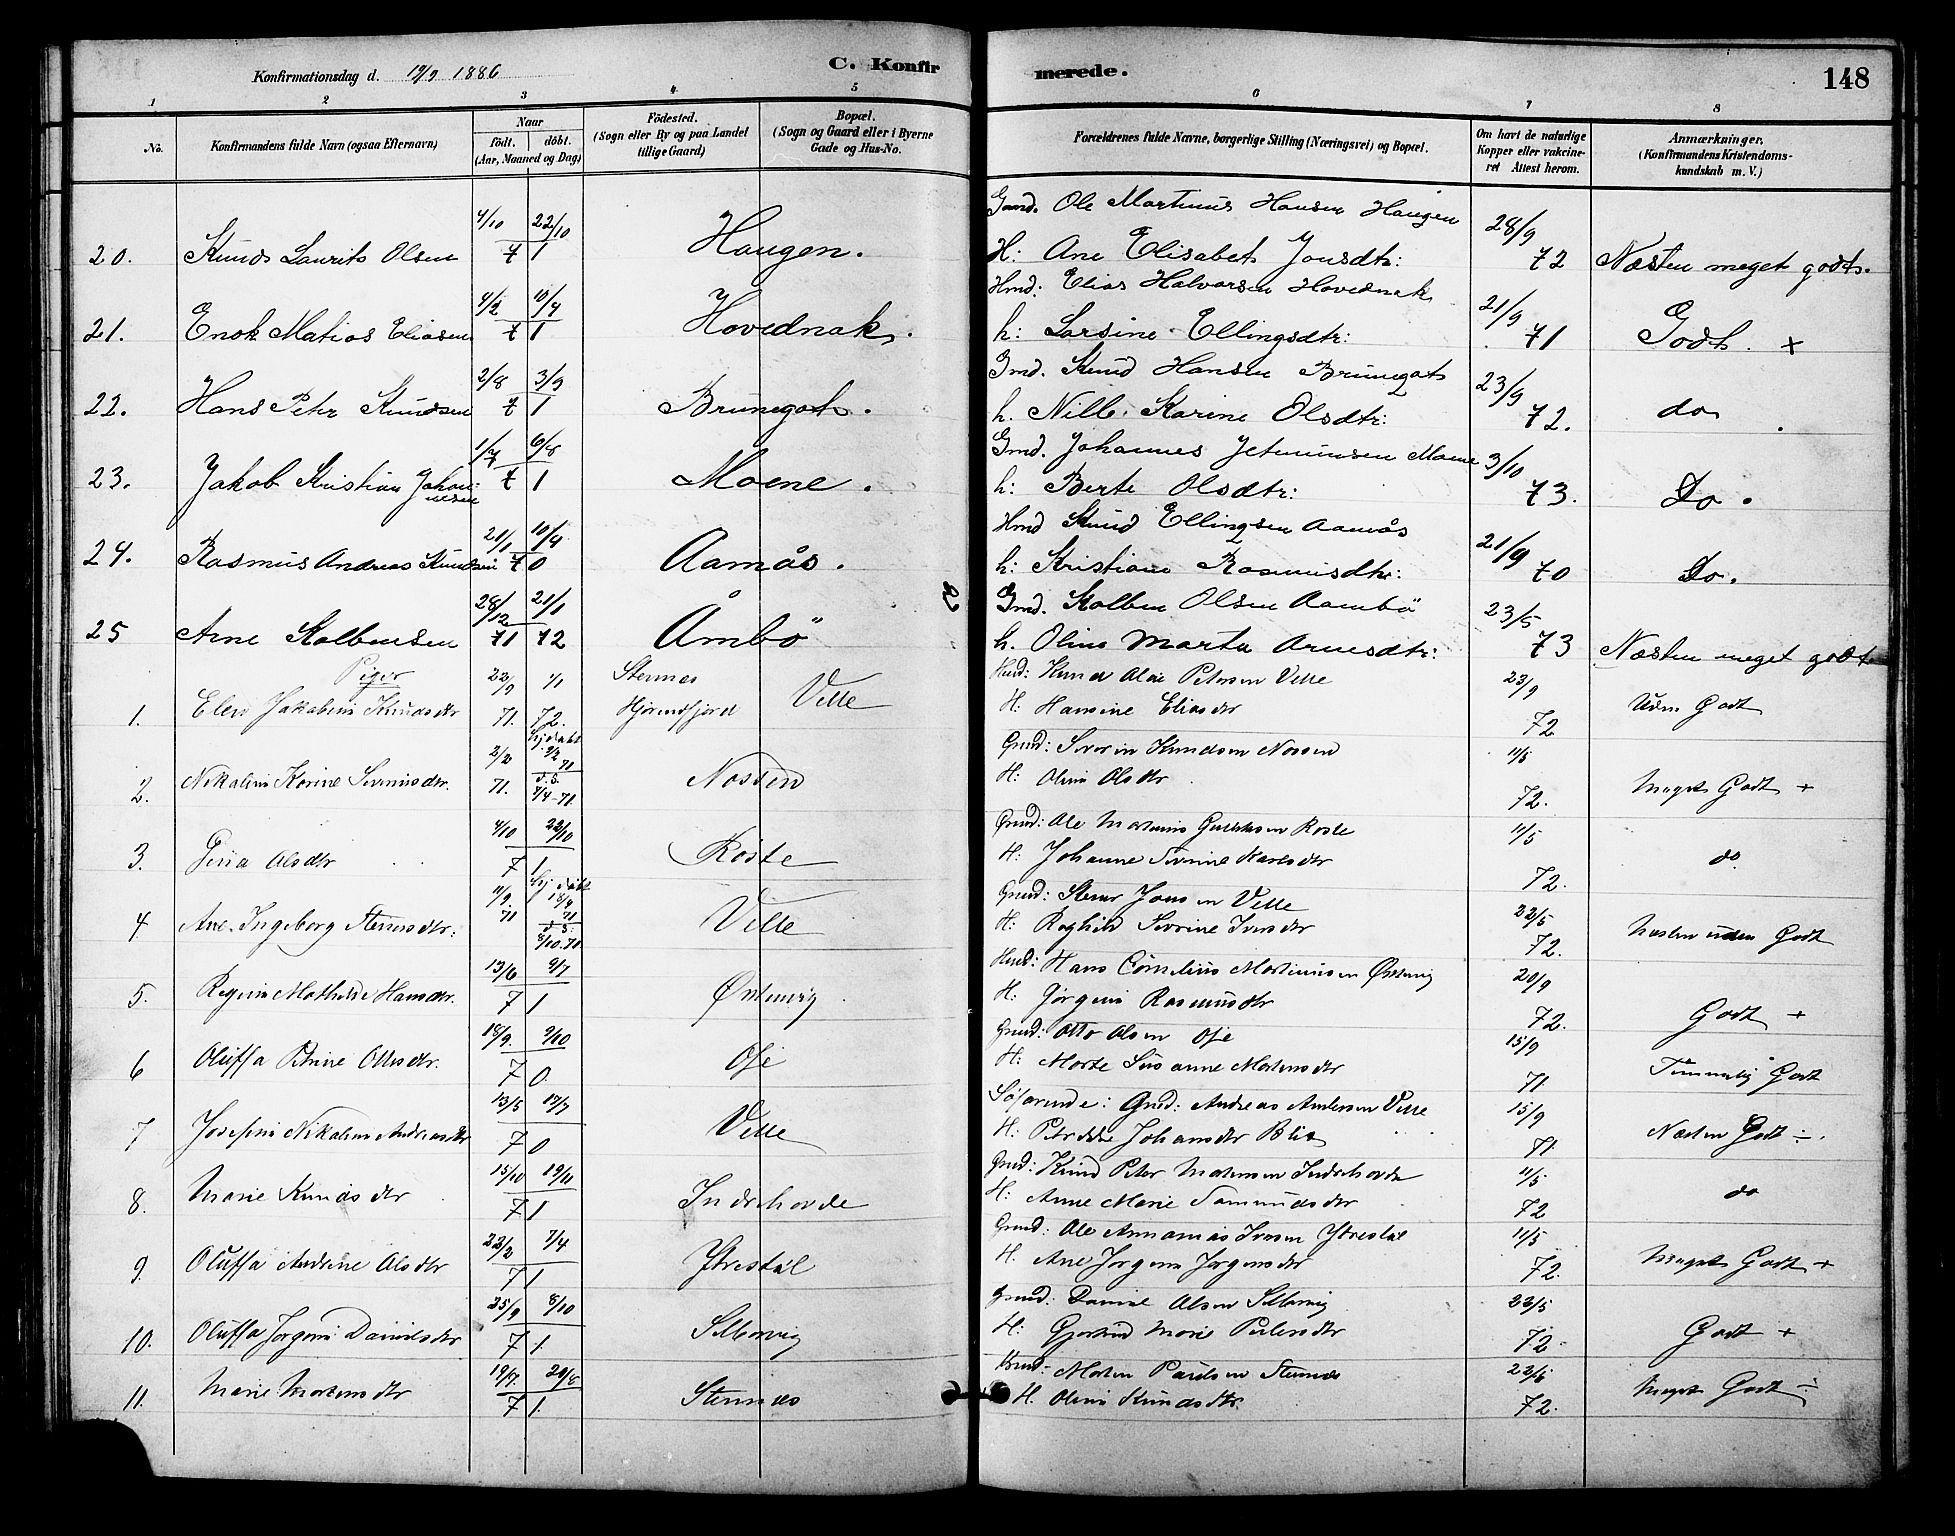 Konfirmationsdag d. 19/9 1886
C. Konfirmerede.
148
1 2 3 4 5 6 7 8
No.
Konfirmandens fulde Navn (ogsaa Efternavn)
Naar
födt. döbt.
(Aar, Maaned og Dag)
Födested.
(Sogn eller By og paa Landet
tillige Gaard)
Bopæl.
(Sogn og Gaard eller i Byerne
Gade og Hus-No.
Forældrenes fulde Navne, borgerlige Stilling (Næringsvei) og Bopæl.
Om havt de naturlige
Kopper eller vakcine-
ret Attest herom.
Anmærkninger,
(Konfirmandens Kristendoms-
kundskab m. V.)
20. Knud Laurits Olsen 4/10 22/10 71 Haugen. Gmd. Ole Martinus Hansen Haugen
H: Ane Elisabet Jonsdtr: 28/9 72 Næsten meget godt.
21. Enok Matias Eliasen 4/2 10/4 71 Hovednak. Hmd: Elias Halvorsen Hovednak
h: Larsine Ellingsdtr: 21/9 71 Godt. +
22. Hans Petr Knudsen 2/8 3/9 71 Brunegot. Gmd. Knud Hansen Brunegot
h. Nille Karine Olsdtr: 23/9 72. do
23. Jakob Kristian Johannesen 1/7 6/8 71 Moene. Gmd. Johannes Jetmundsen Moene
h: Berte Olsdtr: 3/10 73. Do.
24. Rasmus Andreas Knudsen 21/1 10/4 70 Aamås. Hmd Knud Ellingsen Aamås
h: Kristiane Rasmusdtr: 21/9 70 Do.
25 Arne Kolbensen 28/12 71 21/1 72 Åmbö Gmd. Kolben Olsen Aambö
h. Oline Marta Arnesdtr: 23/5 73 Næsten meget godt
Piger
1. Elen Jakobine Knudsdtr 22/9 71. 1/1 72. Stennes Hjörundfjord Velle Hmd: Knud Petersen Velle
H: Hansine Eliasdtr 23/9 72 Uden Godt
2. Nikoline Karine Severinsdtr. 2/2 71. hj.döbt 2/2 71 d. S. 7/4-71 Nossen Gmd: Severin Knudsen Nossen
H: Oline Olsdtr 11/5 72. Meget Godt +
3. Jensa Olsdtr 4/10 22/10 71 Roste Gmd: Ole Martinus Roste
H: Johanne Severine Larsdtr 11/5 72. do
4 Ane Ingeborg Stenersdtr: 11/9 71 hj. döbt 71 d. S. 8/10.71 Velle Gmd: Stener Jonsen Velle
H: Raghild Severine Iversdtr 22/5 72. Næsten uden Godt
5. Regine Mathilde Hansdtr. 13/6 9/7 71 Östenvig Hmd: Hans Cornelius Martinusen Östenvig
H: Jörgine Rasmusdtr 20/9 72. Godt +
6 Oluffa Petrine Ottosdtr. 18/9. 9/10 70. Oje Gmd: Otto Olsen Oje
H: Marte Susanne Mortensdtr 15/9 71 Temmelig Godt
7 Josefine Nikoline Andreasdtr 13/5 17/7 70 Velle Söfarende: Gmd: Andreas Andersen Velle
H: Johansdtr 15/9 71. Næsten Godt ÷.
8. Marie Knudsdtr 15/10 19/11 71 Indrehovde Gmd: Knud Peter Mortensen Indrehovde
H: Anne Marie Samundsdtr 11/5 72 do
9. Oluffa Andrine Olsdtr 22/2 7/4 71. Ytrestöl Gmd: Ole Annanias Iversen Ytrestöl
H. Ane Jörgine Jörgensdtr 11/5 72. Meget Godt +
10. Oluffa Jörgine Danielsdtr 25/9 8/10 71. Selbervig Gmd: Daniel Olsen Selbervig
H: Gjertrud Marie Pedersdtr 23/5 72- Godt +
11. Marie Mortensdtr 19/7. 20/8 71. Stennes Gmd: Morten Paulsen Stennes
H. Oline Knudsdtr. 23/5 72. Meget Godt ÷